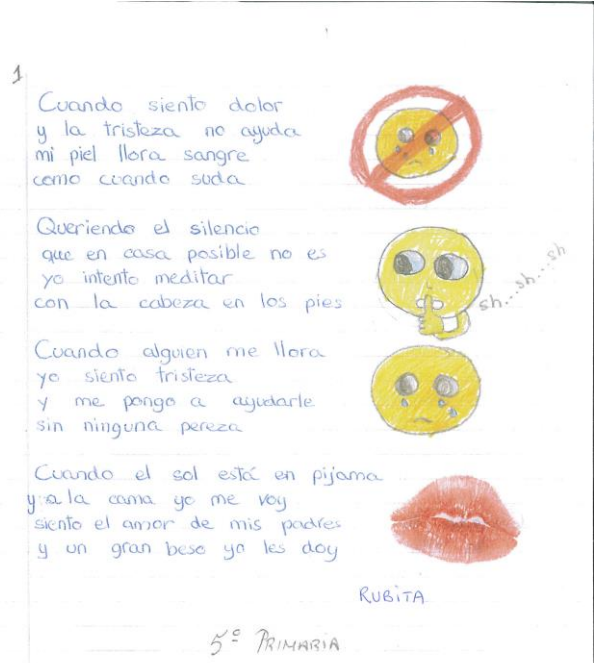 1
Cuando siento dolor
y la tristeza no ayuda
mi piel llora sangre
como cuando suda
Queriendo el silencio
que en casa posible no es
yo intento meditar
con la cabeza en los pies
sh...sh...sh
Cuando alguien me llora
yo siento tristeza
y me pongo a ayudarle
sin ninguna pereza
Cuando el sol está en pijama
y a la cama yo me voy
siento el amor de mis padres
y un gran beso yo les doy
RUBiTA
5º PRIMARIA